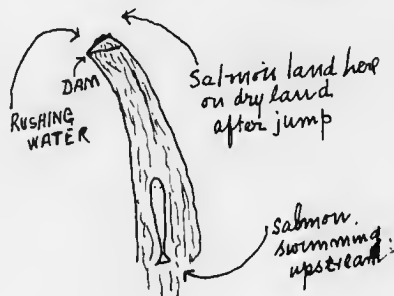 DAM
RUSHING
WATER
Salmon land here
on dry land
after jump
Salmon.
swimming
upstream: